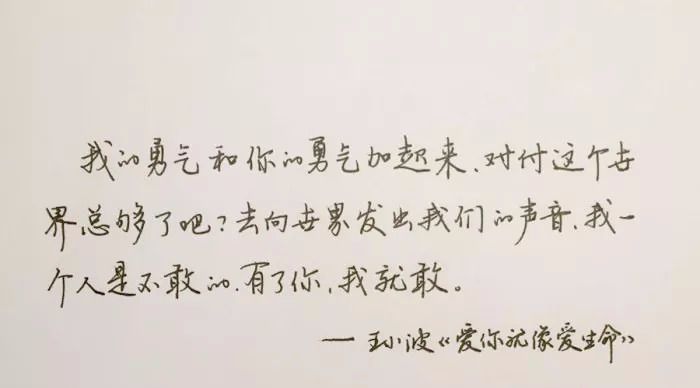 我的勇气和你的勇气加起来,对付这个世
界总够了吧?去向世界发出我们的声音,我一
个人是不敢的,有了你,我就敢。
——王小波《爱你就像爱生命》